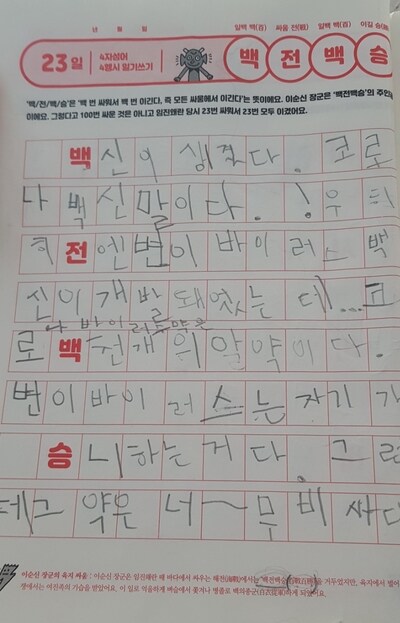 년 월 일
일백 백(百) 싸움 전(戰) 일백 백(百) 이길 승(
23일 4자성어 4행시 일기쓰기 백 전 백 승
'백/전/백/승'은 '백 번 싸워서 백 번 이긴다', 즉 모든 싸움에서 이긴다'는 뜻이에요. 이순신 장군은 '백전백승'의 주인
이에요. 그렇다고 100번 싸운 것은 아니고 임진왜란 당시 23번 싸워서 23번 모두 이겼어요.
백신이 생겼다. 코로
나 백신말이다.! 우리
전엔변이 바이러스 백
신이개발돼었는데...코
나 바이러스약은
로백천개의알약이다.
변이바이러스는자기가
승니하는거다. 그런
데그 약은 너~무비싸다
이순신 장군의 육지 싸움 : 이순신 장군은 임진왜란 때 바다에서 싸우는 해전(海戰)에서는 '백전백승(百戰百勝)'을 거두었지만, 육지에서 벌어
쟁에서는 여진족의 기습을 받았어요. 이 일로 억울하게 벼슬에서 쫓겨나 명품로 백의종군(白衣從軍)하게 되었어요.